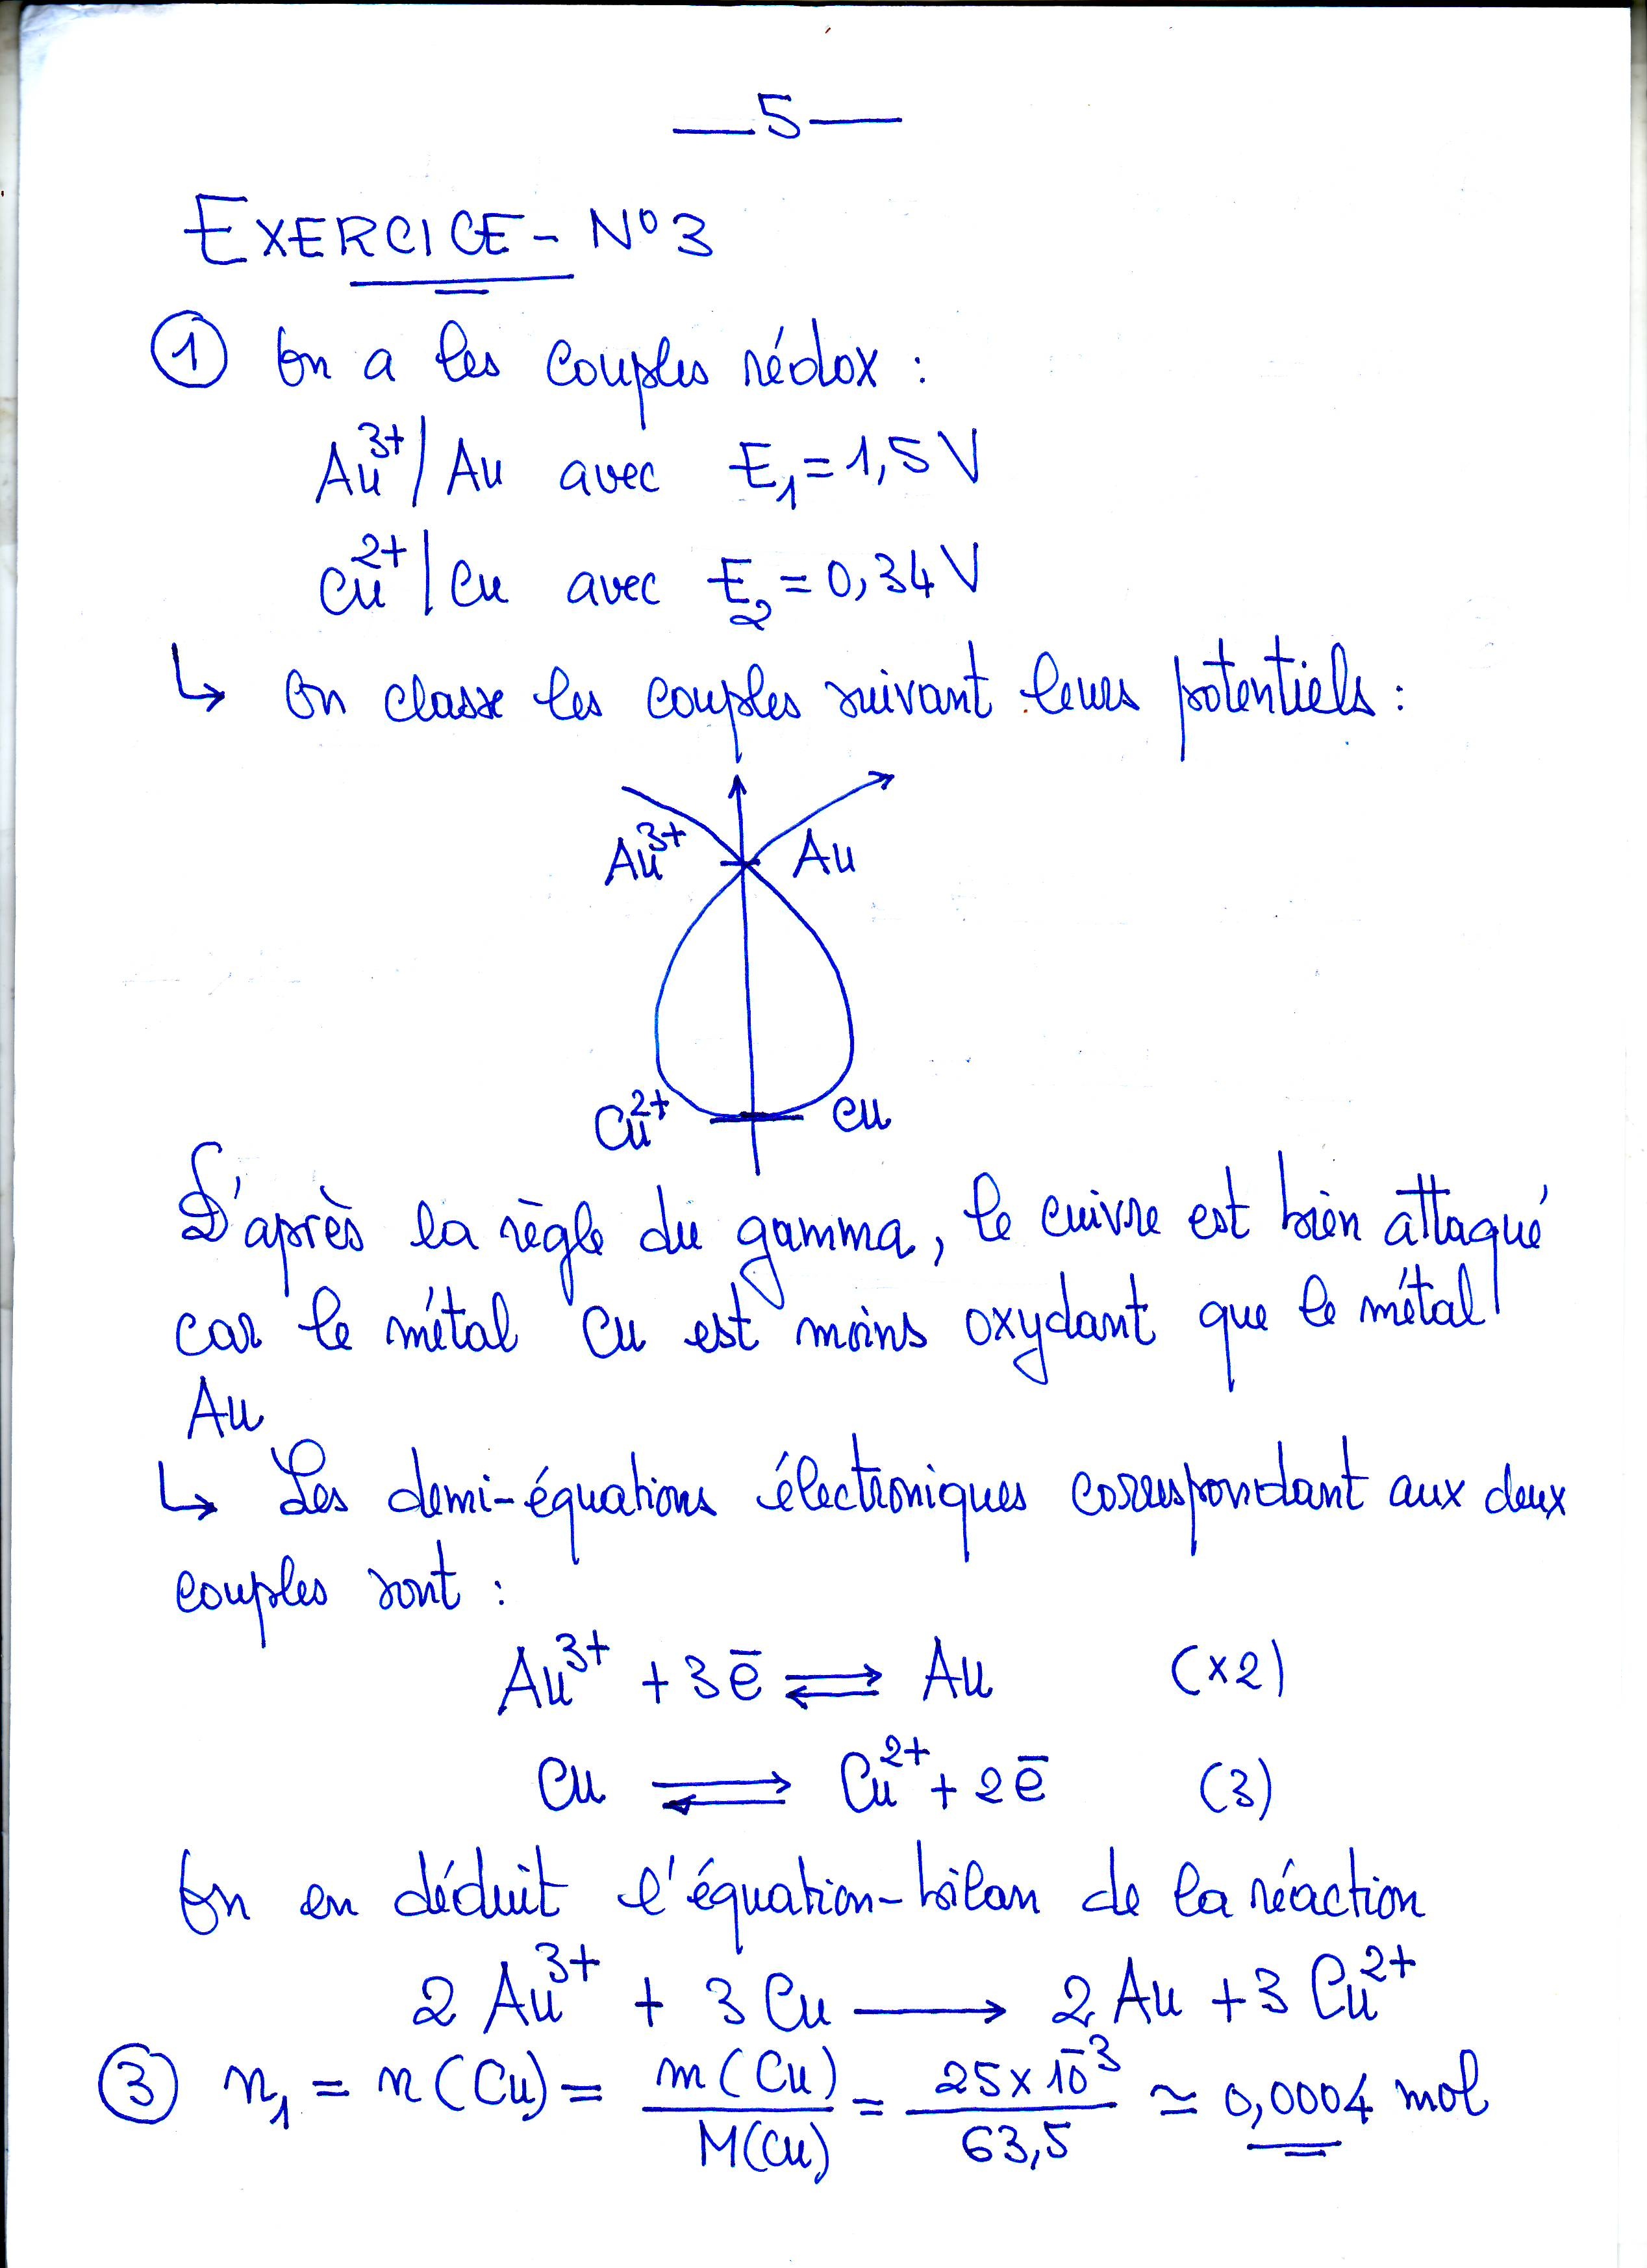 —5—
EXERCICE - N°3
① On a les couples rédox :
Au³⁺/Au avec E₁=1,5V
Cu²⁺/Cu avec E₂=0,34V
↳ On classe les couples suivant leurs potentiels :
Au³⁺ Au
Cu²⁺ Cu
D'après la règle du gamma, le cuivre est bien attaqué
car le métal Cu est moins oxydant que le métal
Au
↳ Les demi-équations électroniques correspondant aux deux
couples sont :
Au³⁺ + 3e⁻ ⇌ Au (×2)
Cu ⇌ Cu²⁺ + 2e⁻ (3)
On en déduit l'équation-bilan de la réaction
2 Au³⁺ + 3 Cu ⟶ 2 Au + 3 Cu²⁺
③ n₁ = n(Cu) = m(Cu)/M(Cu) = 25×10⁻³/63,5 ≃ 0,0004 mol